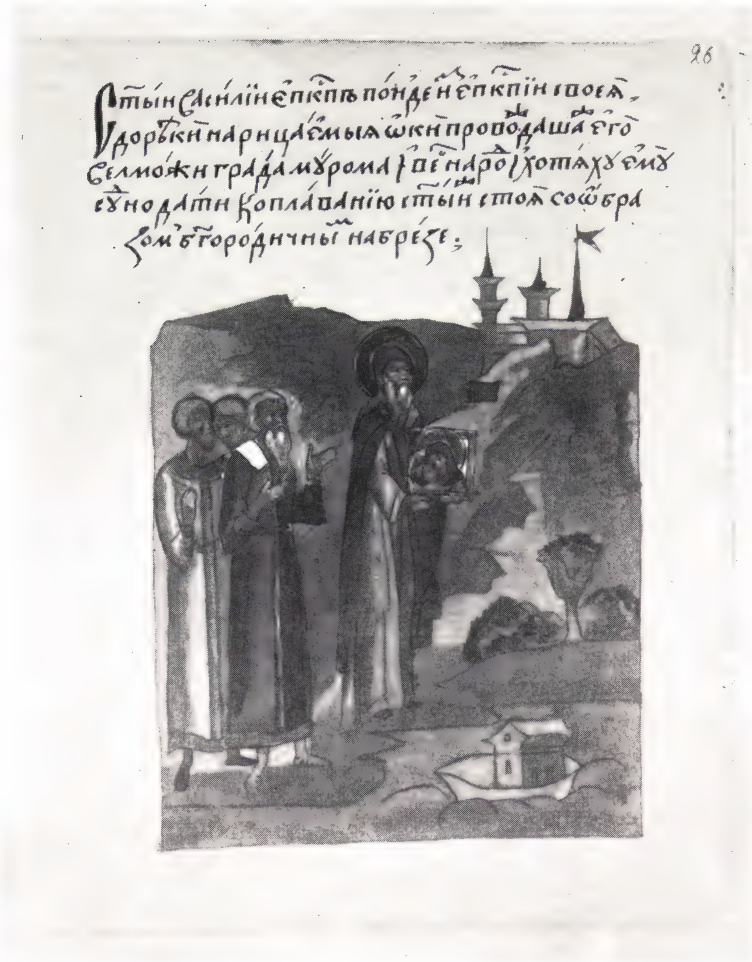 26
Ст҃ы́и Васи́лїи є҆пⷭ҇кпъ по́иде и҆зъ є҆пⷭ҇кпїи своеѧ̀,
до рѣкѝ нарица́емыѧ ѡ҆кѝ провода́ша є҆го̀
велмо́жи гра́да му́рома и҆ ве́сь наро́дъ хотѧ́ху є҆му̀
су́дно да́ти ко пла́ванїю ст҃ы́и стоѧ̀ со ѡ҆́бра
зомъ бг҃оро́дичнымъ на бре́зе: